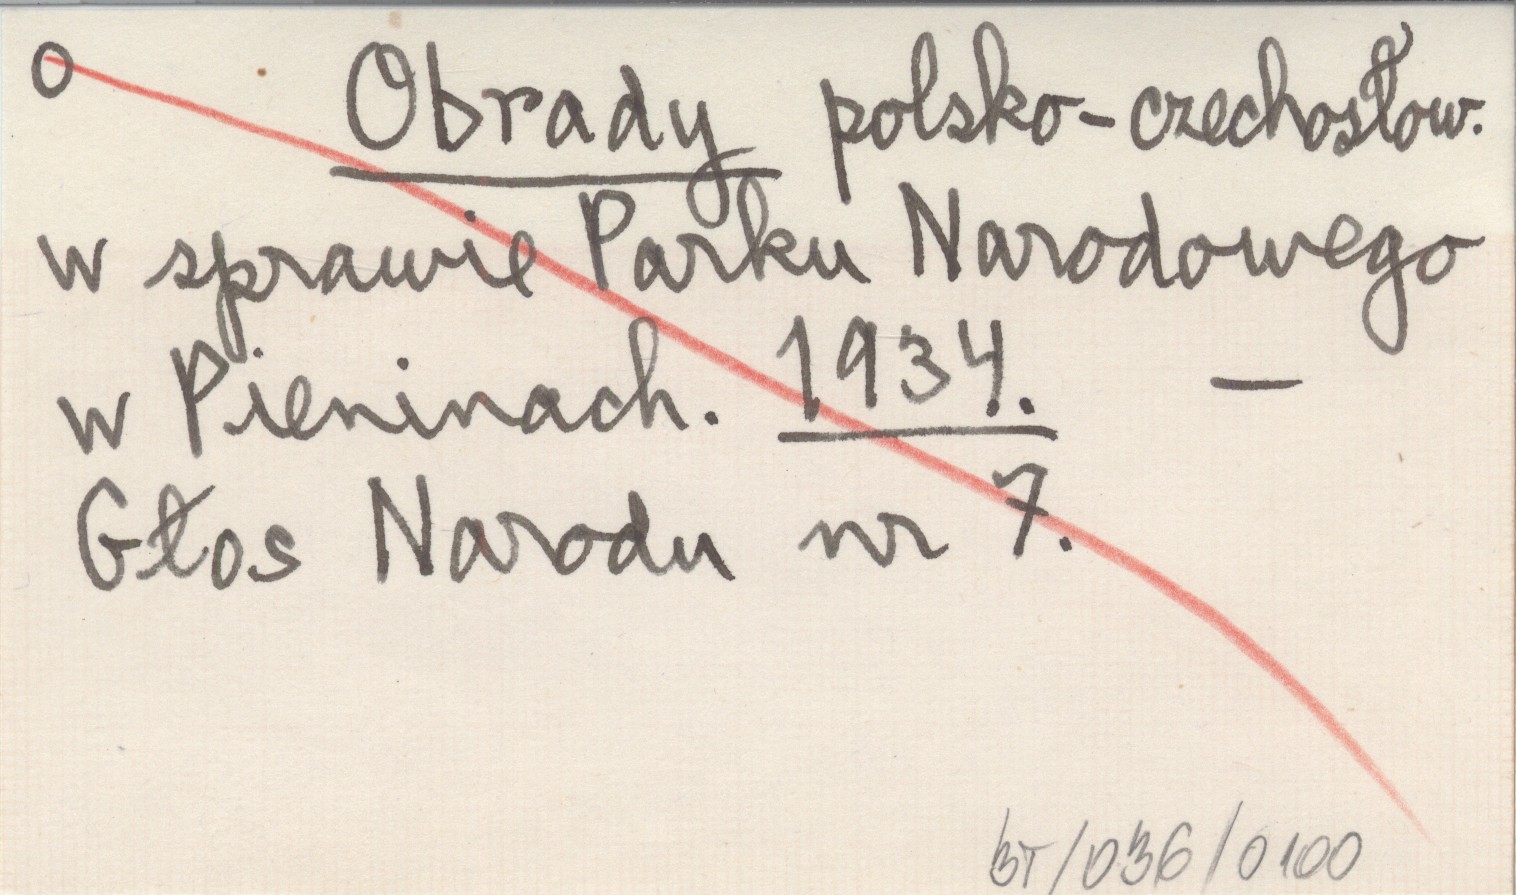 O Obrady polsko-czechosłow.
w sprawie Parku Narodowego
w Pieninach. 1934. —
Głos Narodu nr 7.
BT/036/0100